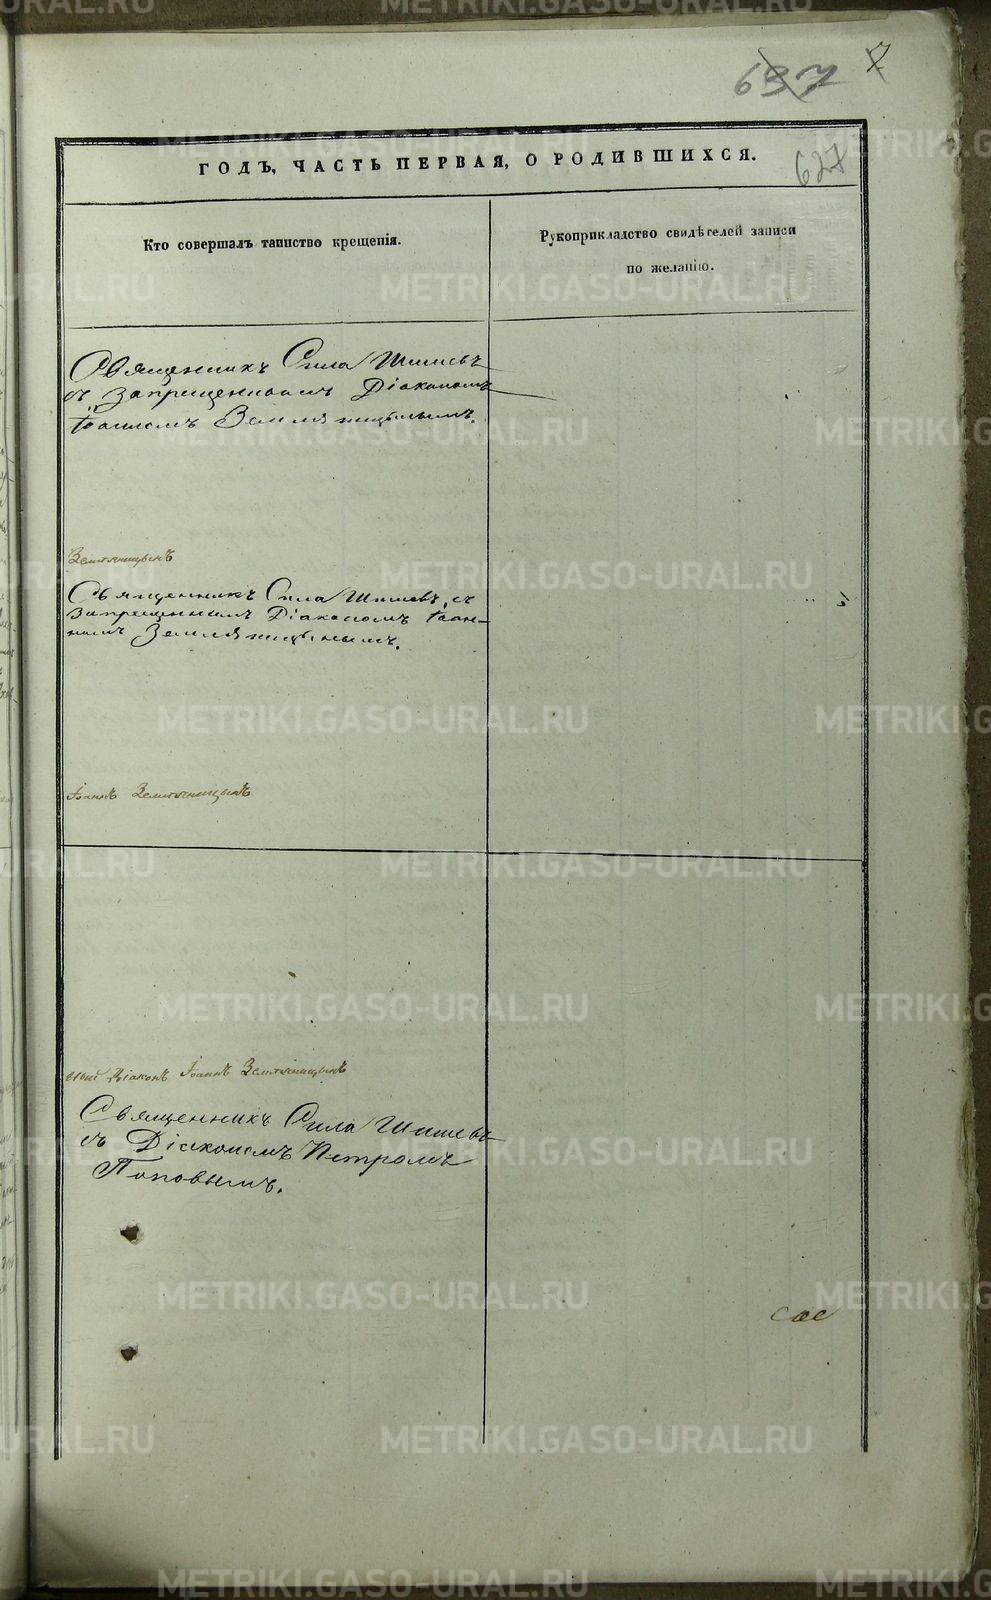 637 7
ГОДЪ, ЧАСТЬ ПЕРВАЯ, О РОДИВШИХСЯ.
627
Кто совершалъ таинство крещенія.
Рукоприкладство свидѣтелей записи
по желанію.
Священникъ Сила Шишевъ
съ запрещеннымъ Діакономъ
Іоанномъ Земляницынымъ.
Земляницынъ
Священникъ Сила Шишевъ, съ
запрещеннымъ Діакономъ Іоан-
номъ Земляницынымъ.
Іоаннъ Земляницынъ
Діаконъ Іоаннъ Земляницынъ
Священникъ Сила Шишевъ
съ Діакономъ Петромъ
Поповымъ.
METRIKI.GASO-URAL.RU